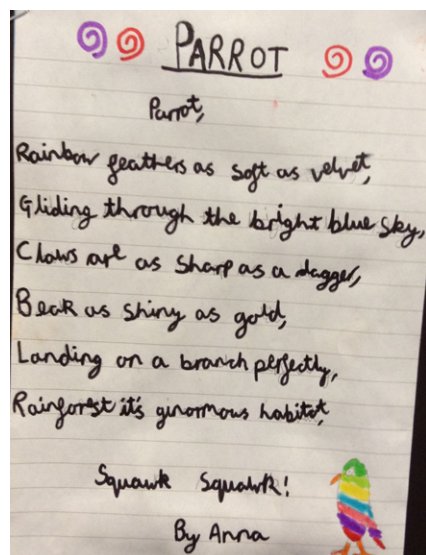 PARROT
Parrot,
Rainbow feathers as soft as velvet,
Gliding through the bright blue sky,
Claws are as sharp as a dagger,
Beak as shiny as gold,
Landing on a branch perfectly,
Rainforest it's ginormous habitat,
Squawk Squawk!
By Anna